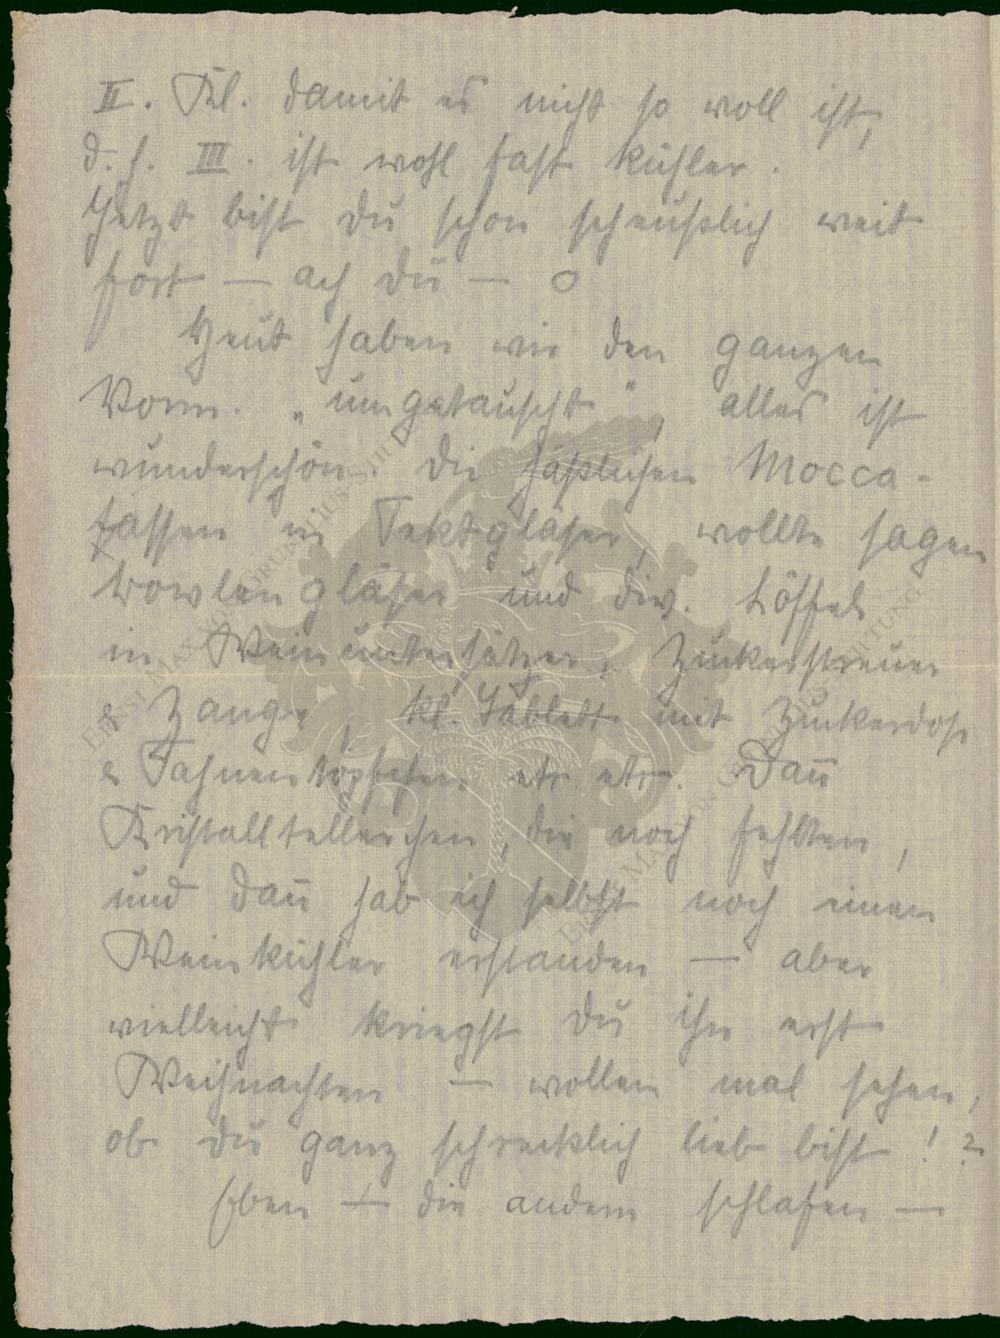 II. Kl. damit es nicht so voll ist,
d. h. III. ist wohl fast kühler.
Jetzt bist Du schon scheußlich weit
fort — ach Du — o
Heut haben wir den ganzen
Vorm. „umgetauscht", alles ist
wunderschön. Die hässlichen Mocca-
tassen in Sektgläser, wollte sagen
Bowlengläser und div. Löffel
in Weinuntersätzer, Zuckerstreuer
& Zange, kl. Tablett mit Zuckerdose
& Sahnentöpfchen etc. etc. Dan̄
Kristalltellerchen, die noch fehlten,
und dan̄ hab ich selbst noch einen
Weinkühler erstanden — aber
vielleicht kriegst Du ihn erst
Weihnachten — wollen mal sehen,
ob Du ganz schrecklich lieb bist!?
Eben — die andern schlafen —
ERNST MAX VON GRUNELIUS-STIFTUNG
ERNST MAX VON GRUNELIUS-STIFTUNG